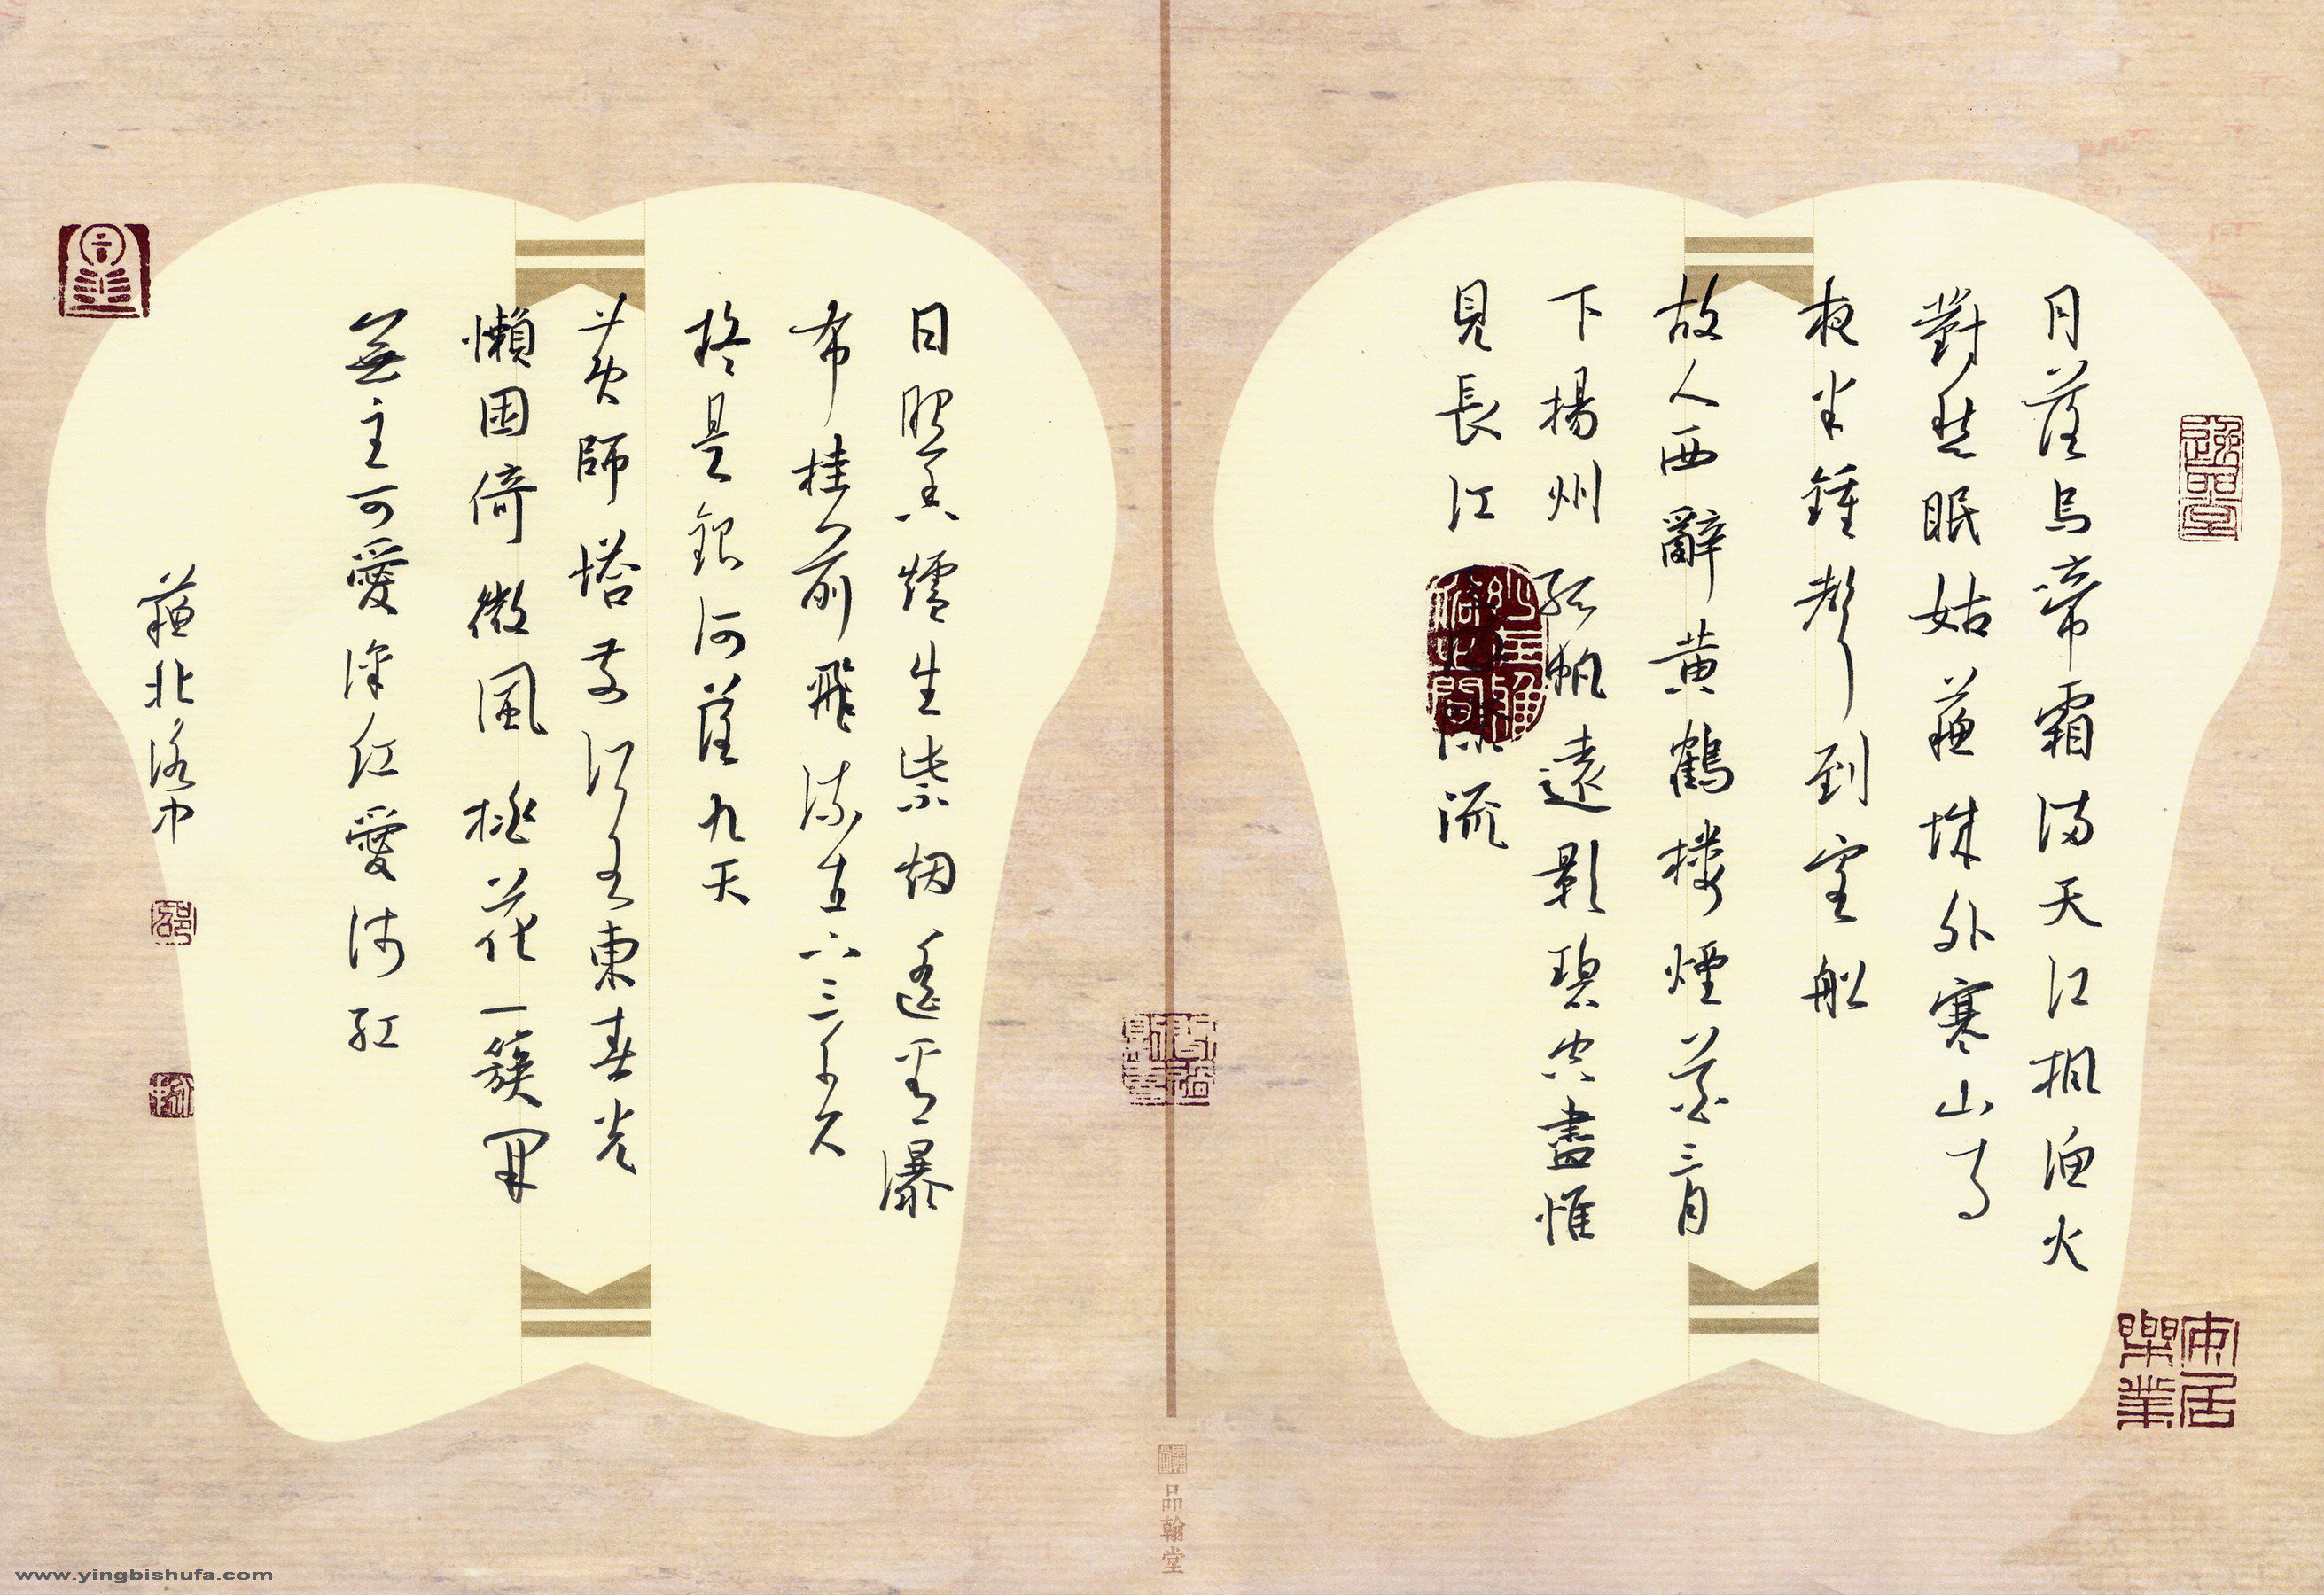 月落烏啼霜滿天江楓漁火
對愁眠姑蘇城外寒山寺
夜半鍾聲到客船
故人西辭黃鶴樓煙花三月
下揚州孤帆遠影碧空盡惟
見長江流
日照香爐生紫烟遙看瀑
布挂前飛流直下三千尺
疑是銀河落九天
黃師塔前江水東春光
懶困倚微風桃花一簇開
無主可愛深紅愛淺紅
蘇北
品翰堂
www.yingbishufa.com